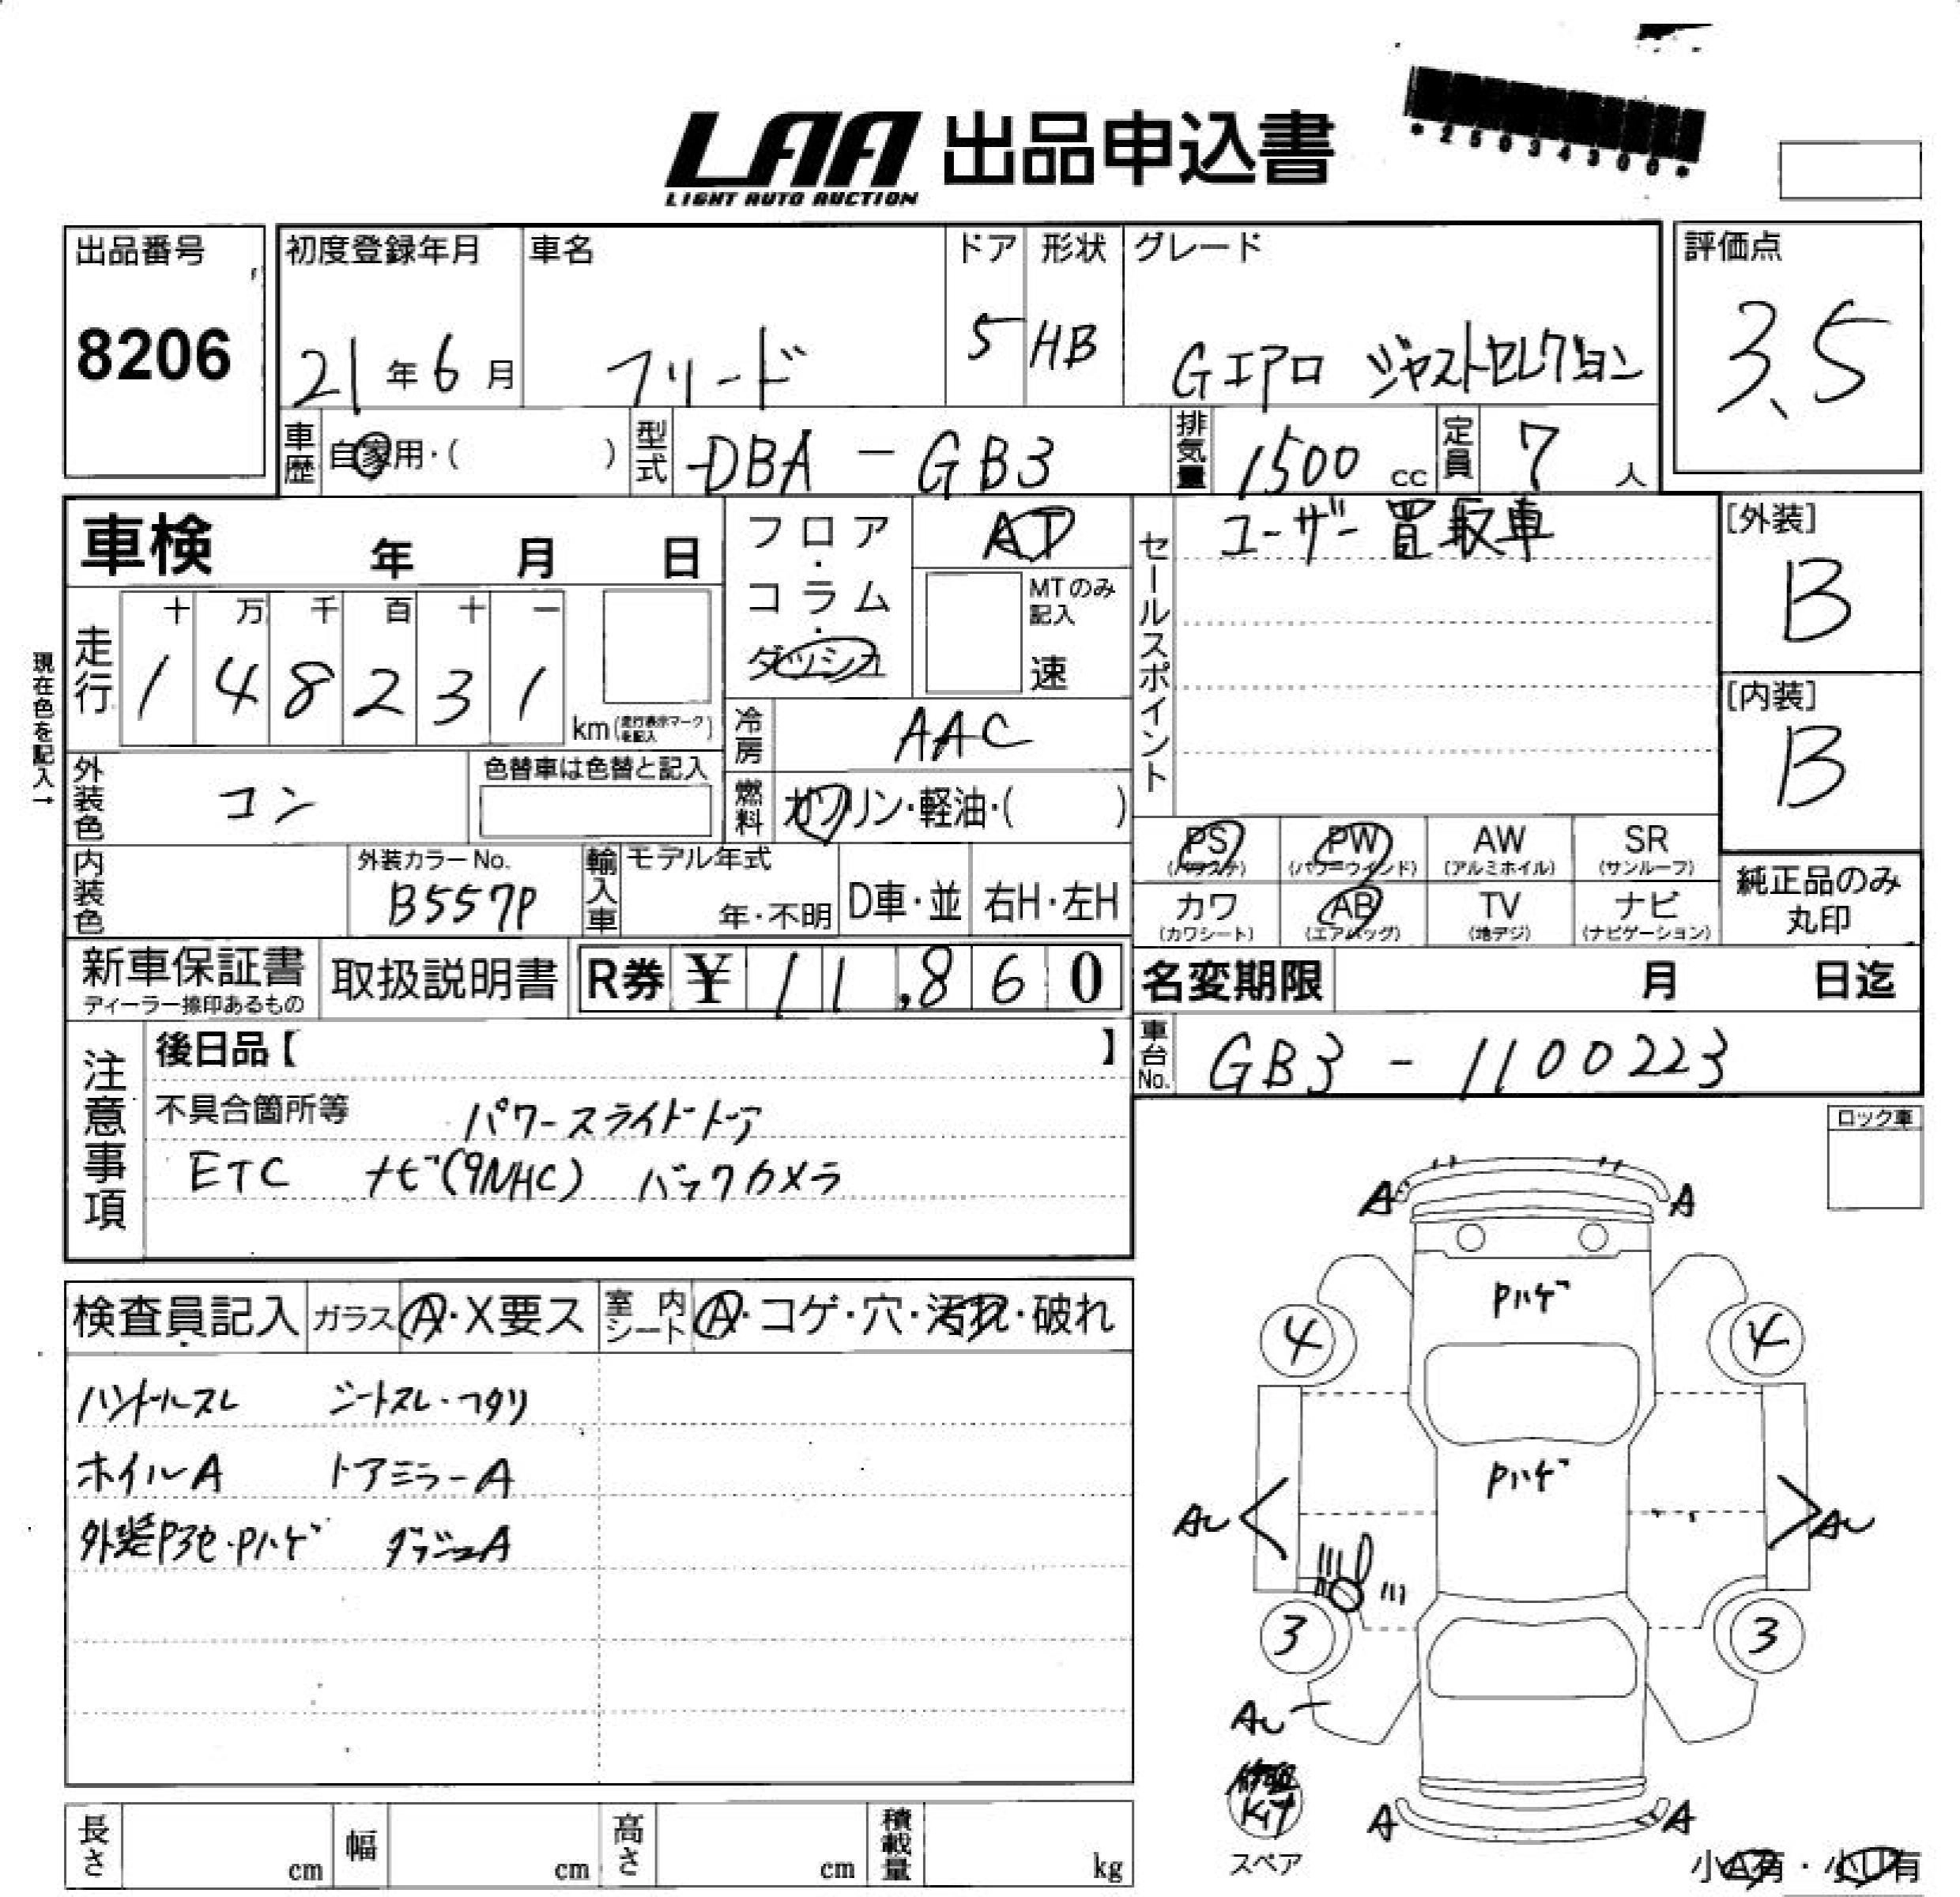 LAA 出品申込書
LIGHT AUTO AUCTION
*25034300*
出品番号
8206
初度登録年月
21年6月
車名
フリード
ドア
5
形状
HB
グレード
Gエアロ ジャストセレクション
評価点
3.5
車歴
自家用・( )
型式
DBA - GB3
排気量
1500 cc
定員
7 人
車検 年 月 日
フロア・コラム・ダッシュ
AT
MTのみ記入
速
セールスポイント
ユーザー買取車
[外装]
B
[内装]
B
現在色を記入→
走行
十 万 千 百 十 一
1 4 8 2 3 1
km(走行表示マークを記入)
冷房
AAC
外装色
コン
色替車は色替と記入
燃料
ガソリン・軽油・( )
PS
(パワステ)
PW
(パワーウインド)
AW
(アルミホイル)
SR
(サンルーフ)
カワ
(カワシート)
AB
(エアバッグ)
TV
(地デジ)
ナビ
(ナビゲーション)
純正品のみ
丸印
内装色
外装カラーNo.
B557P
輸入車
モデル年式
年・不明
D車・並
右H・左H
新車保証書
ディーラー捺印あるもの
取扱説明書
R券 ¥ 11,860
名変期限 月 日迄
車台No.
GB3 - 1100223
注意事項
後日品【 】
不具合箇所等 パワースライドドア
ETC ナビ(9NHC) バックカメラ
ロック車
A A
Pハゲ
4 4
Pハゲ
AU AU
3 3
AU
修理
KIT
スペア
A A
小A有・小U有
検査員記入
ガラス
A・X要ス
室内シート
A・コゲ・穴・汚れ・破れ
ハンドルスレ シートスレ・ヘタリ
ホイルA ドアミラーA
外装P3色・Pハゲ ダッシュA
長さ cm
幅 cm
高さ cm
積載量 kg